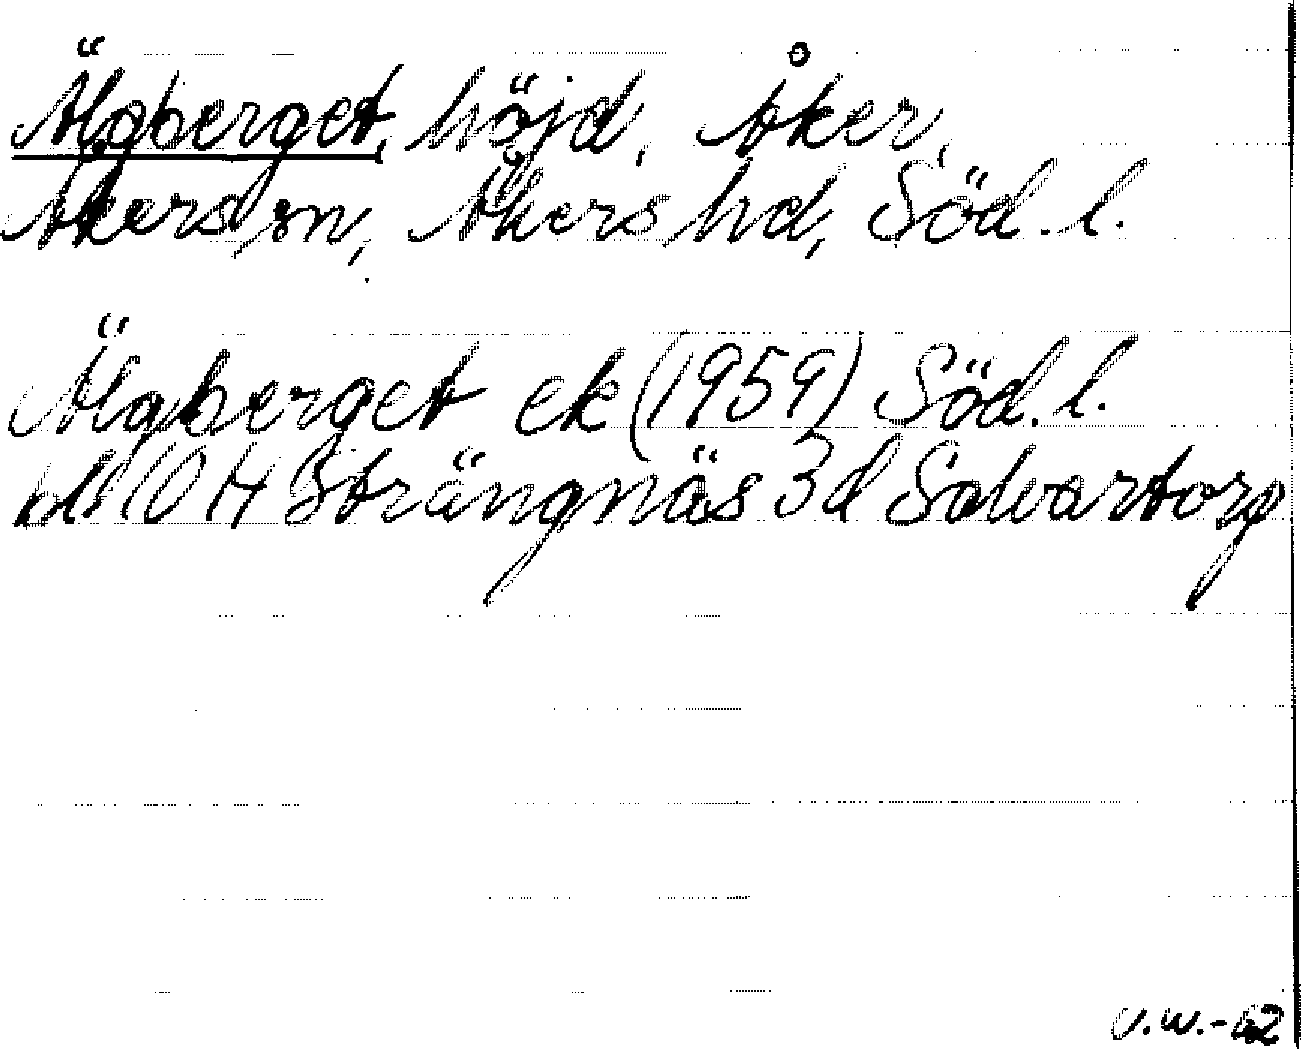 Älgberget, höjd, Åker,
Åkers sn, Åkers hd, Söd. l.
Älgberget ek (1959) Söd. l.
bl 10 H Strängnäs 3d Salvartorp
V.W.-62